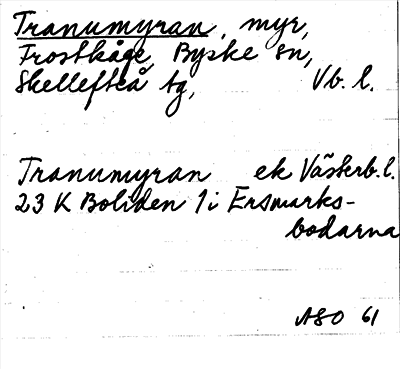 Tranumyran, myr,
Frostkåge, Byske sn,
Skellefteå tg, Vb. l.
Tranumyran ek Västerb. l.
23 K Boliden 1i Ersmarks-
bodarna
ASO 61